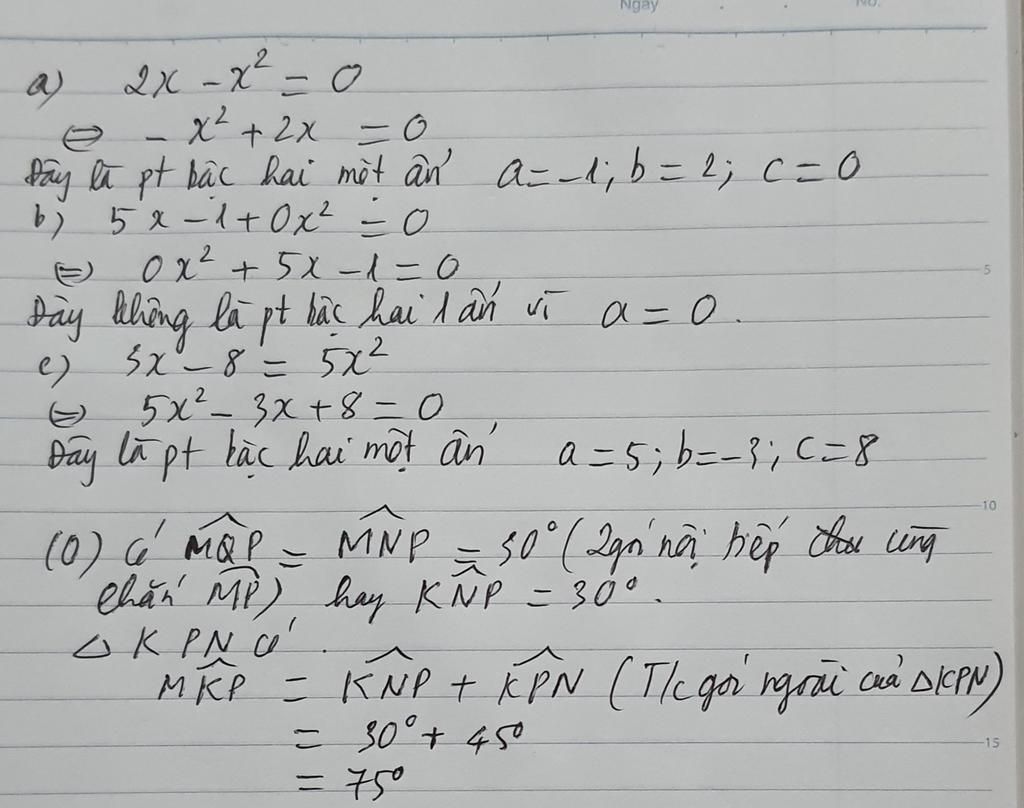 Ngày No.
a) 2x - x² = 0
⇔ - x² + 2x = 0
Đây là pt bậc hai một ẩn a = -1; b = 2; c = 0
b) 5x - 1 + 0x² = 0
⇔ 0x² + 5x - 1 = 0
5
Đây không là pt bậc hai 1 ẩn vì a = 0.
c) 3x - 8 = 5x²
⇔ 5x² - 3x + 8 = 0
Đây là pt bậc hai một ẩn a = 5; b = -3; c = 8
10
(O) có MQP = MNP = 30° (2 góc nội tiếp cùng
chắn MP) hay KNP = 30°.
△ KPN có
MKP = KNP + KPN (T/c góc ngoài của △KPN)
= 30° + 45°
15
= 75°